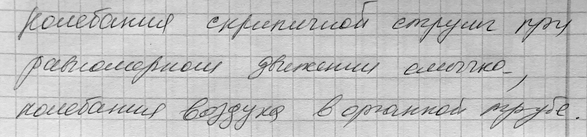 колебания скрипичной струны при
равномерном движении смычка,
колебания воздуха в органной трубе.